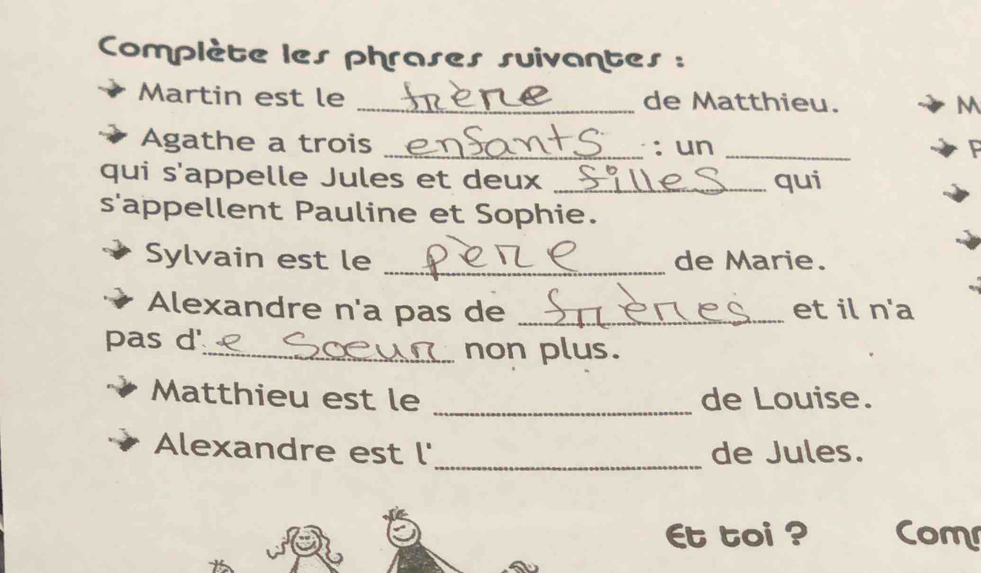 Complète les phrases suivantes :
Martin est le frère de Matthieu.
Agathe a trois enfants : un
qui s'appelle Jules et deux filles qui
s'appellent Pauline et Sophie.
Sylvain est le père de Marie.
Alexandre n'a pas de frères et il n'a
pas d'e soeur non plus.
Matthieu est le de Louise.
Alexandre est l' de Jules.
Et toi ?